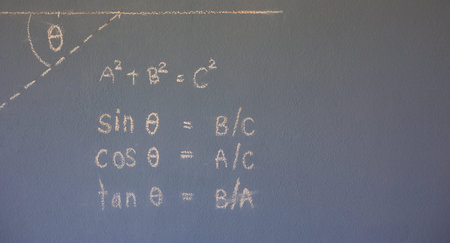 θ
A² + B² = C²
sin θ = B/C
cos θ = A/C
tan θ = B/A